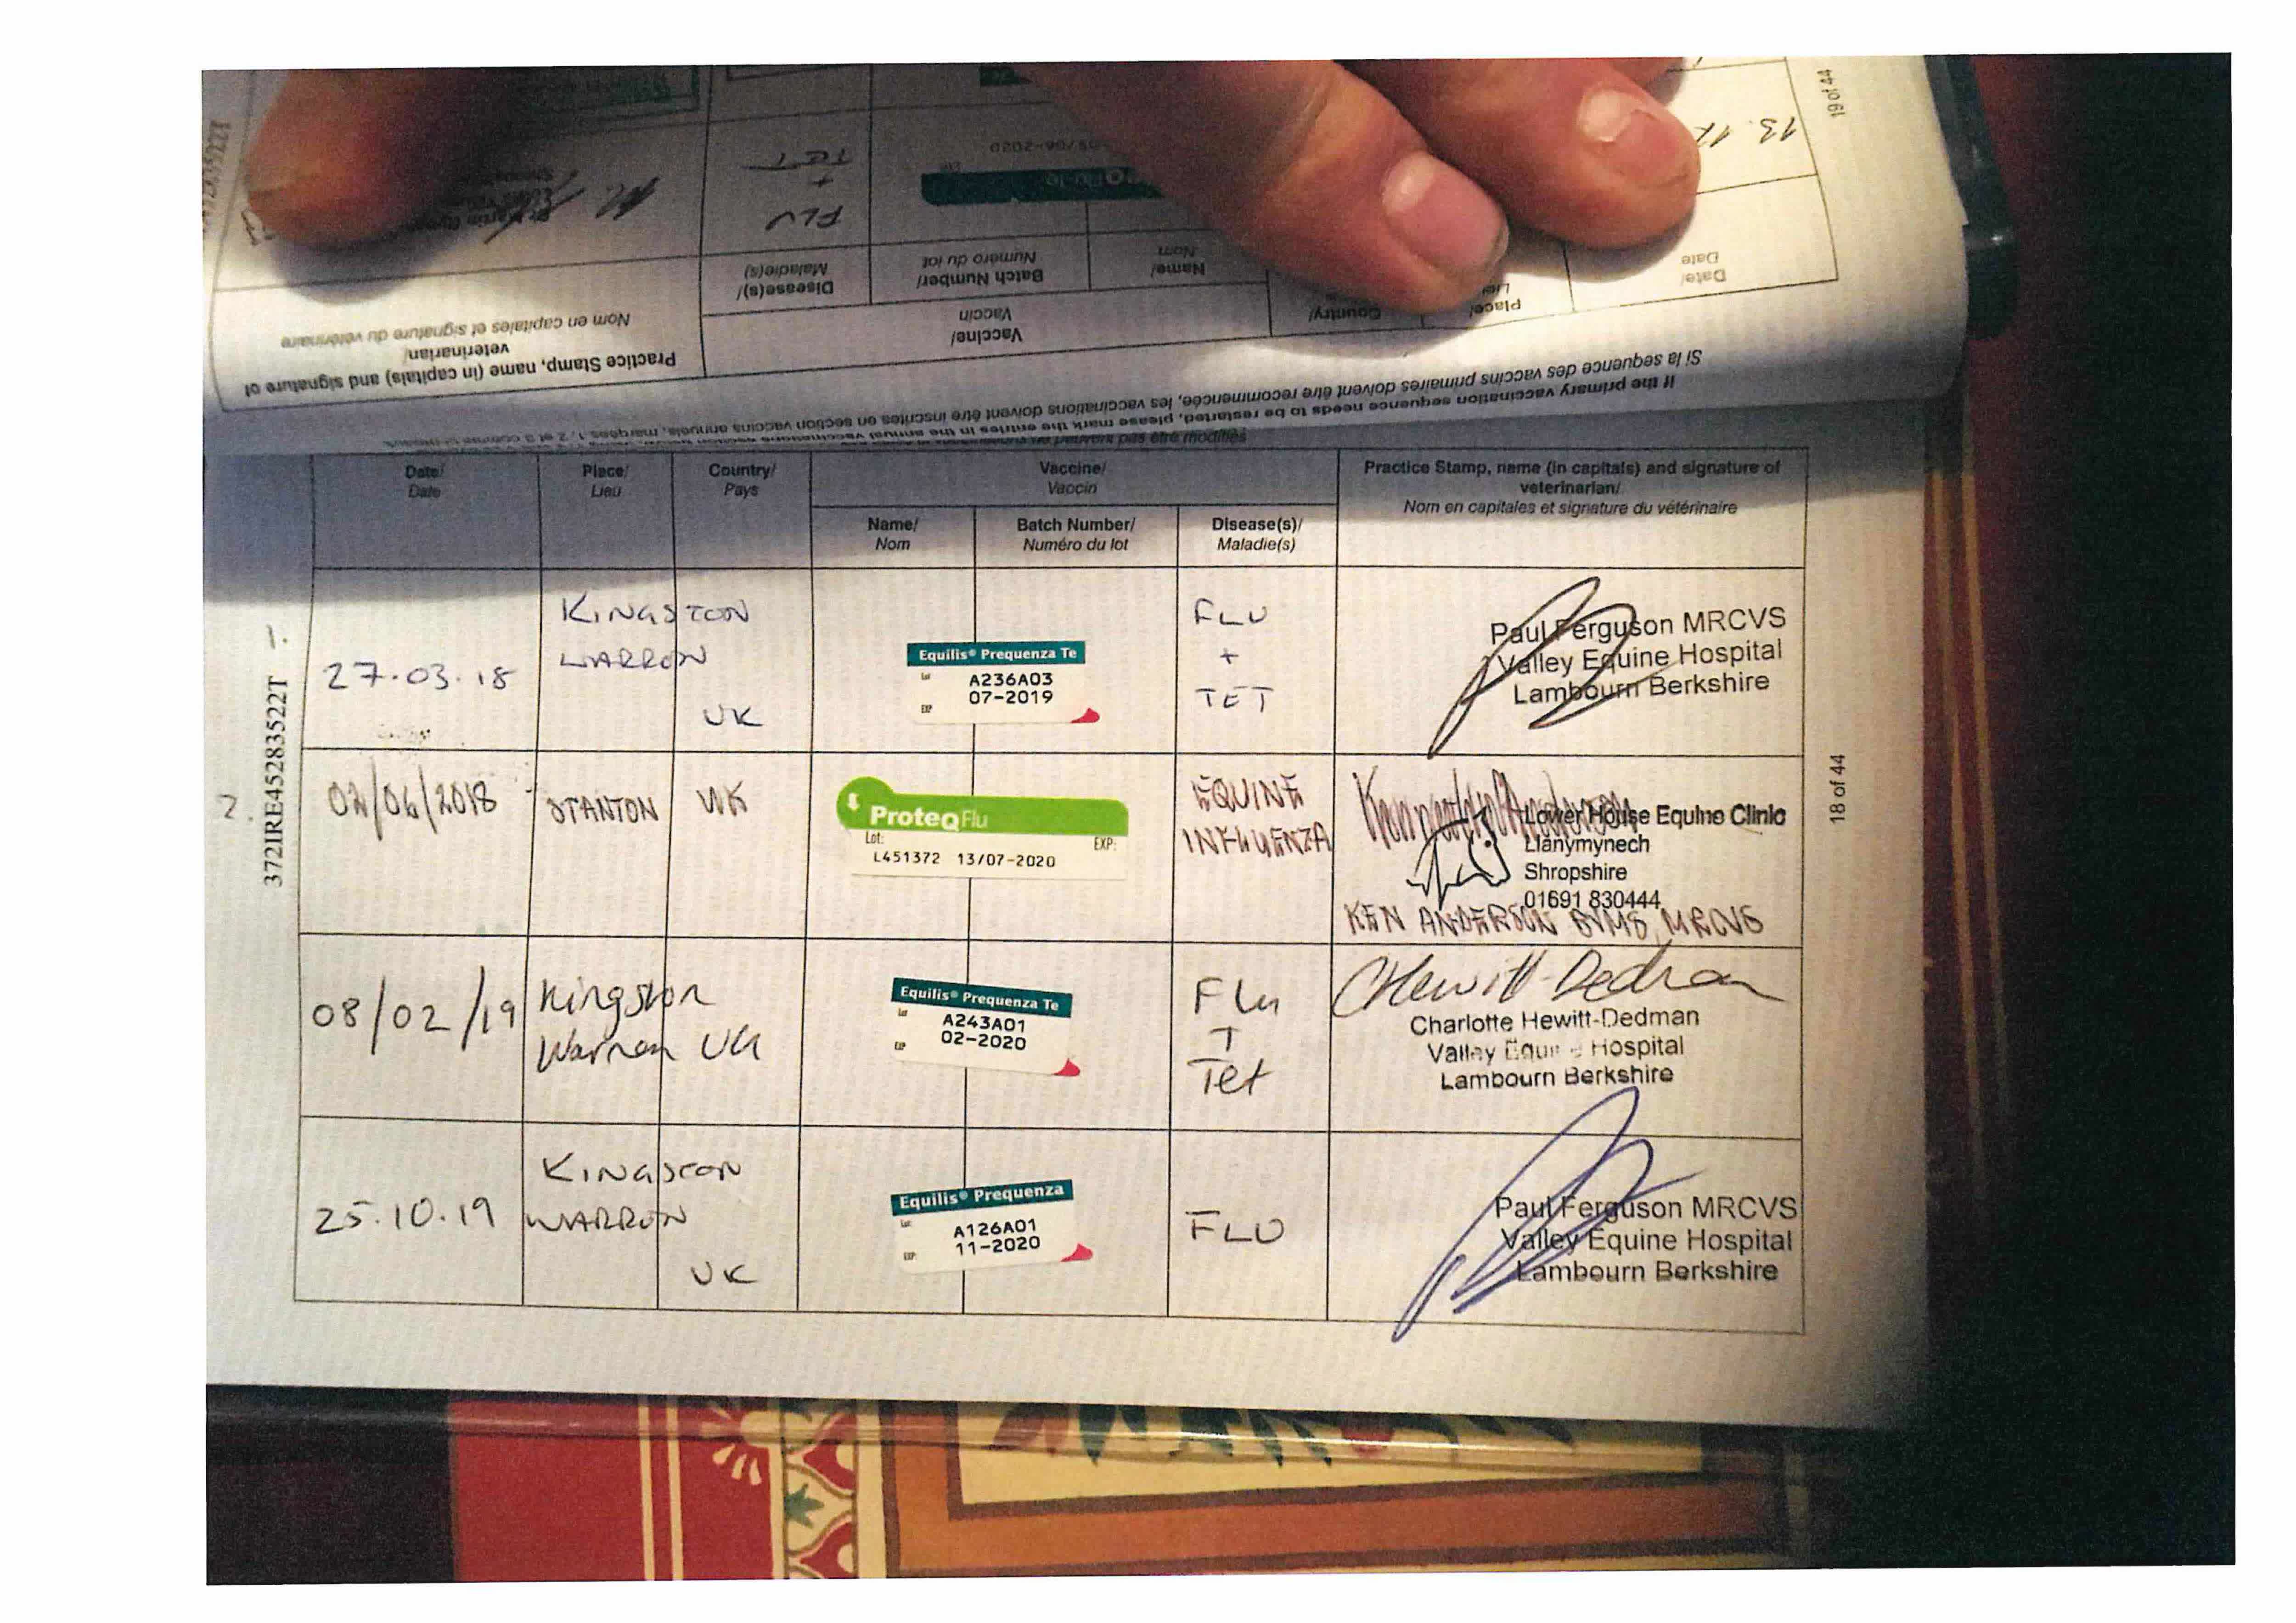 19 of 44
13.12
FLU
+
TET
05/06-2020
Date/
Date
Place/
Country/
Vaccine/
Vaccin
Name/
Nom
Batch Number/
Numéro du lot
Disease(s)/
Maladie(s)
Practice Stamp, name (in capitals) and signature of
veterinarian/
Nom en capitales et signature du vétérinaire
If the primary vaccination sequence needs to be restarted, please mark the entries in the annual vaccinations
Si la séquence des vaccins primaires doivent être recommencée, les vaccinations doivent être inscrites en section vaccins annuels, marquées 1, 2 et 3
ne peuvent pas être modifiés
Date/
Date
Place/
Lieu
Country/
Pays
Vaccine/
Vaccin
Name/
Nom
Batch Number/
Numéro du lot
Disease(s)/
Maladie(s)
Practice Stamp, name (in capitals) and signature of
veterinarian/
Nom en capitales et signature du vétérinaire
1.
27.03.18
KINGSTON
WARREN
UK
Equilis® Prequenza Te
Lot
A236A03
07-2019
EXP
FLU
+
TET
Paul Ferguson MRCVS
Valley Equine Hospital
Lambourn Berkshire
2.
02/06/2018
STANTON
UK
ProteqFlu
Lot:
EXP:
L451372 13/07-2020
EQUINE
INFLUENZA
Lower House Equine Clinic
Llanymynech
Shropshire
01691 830444
KEN ANDERSON BVMS MRCVS
08/02/19
Kingston
Warren UK
Equilis® Prequenza Te
Lot
A243A01
02-2020
EXP
Flu
T
Tet
CHewitt-Dedman
Charlotte Hewitt-Dedman
Valley Equine Hospital
Lambourn Berkshire
25.10.19
KINGSTON
WARREN
UK
Equilis® Prequenza
Lot:
A126A01
11-2020
EXP:
FLU
Paul Ferguson MRCVS
Valley Equine Hospital
Lambourn Berkshire
372IRE452835522T
18 of 44